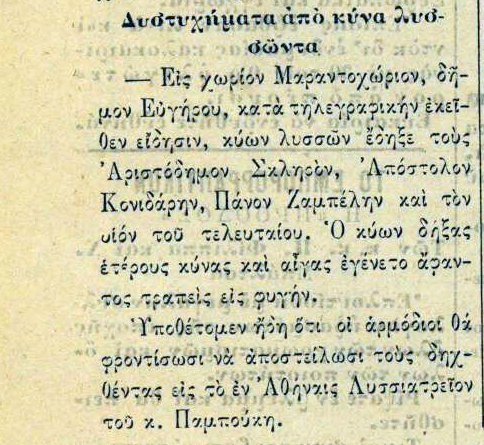 Δυστυχήματα ἀπὸ κύνα λυσ-
σῶντα
— Εἰς χωρίον Μαραντοχώριον, δῆ-
μον Εὐγήρου, κατὰ τηλεγραφικὴν ἐκεῖ-
θεν εἴδησιν, κύων λυσσῶν ἔδηξε τοὺς
Ἀριστόδημον Σκληρὸν, Ἀπόστολον
Κονιδάρην, Πάνον Ζαμπέλην καὶ τὸν
υἱόν τοῦ τελευταίου. Ὁ κύων δήξας
ἑτέρους κύνας καὶ αἶγας ἐγένετο ἄφαν-
τος τραπεὶς εἰς φυγήν.
Ὑποθέτομεν ἤδη ὅτι οἱ ἁρμόδιοι θὰ
φροντίσωσι νὰ ἀποστείλωσι τοὺς δηχ-
θέντας εἰς τὸ ἐν Ἀθήναις Λυσσιατρεῖον
τοῦ κ. Παμπούκη.